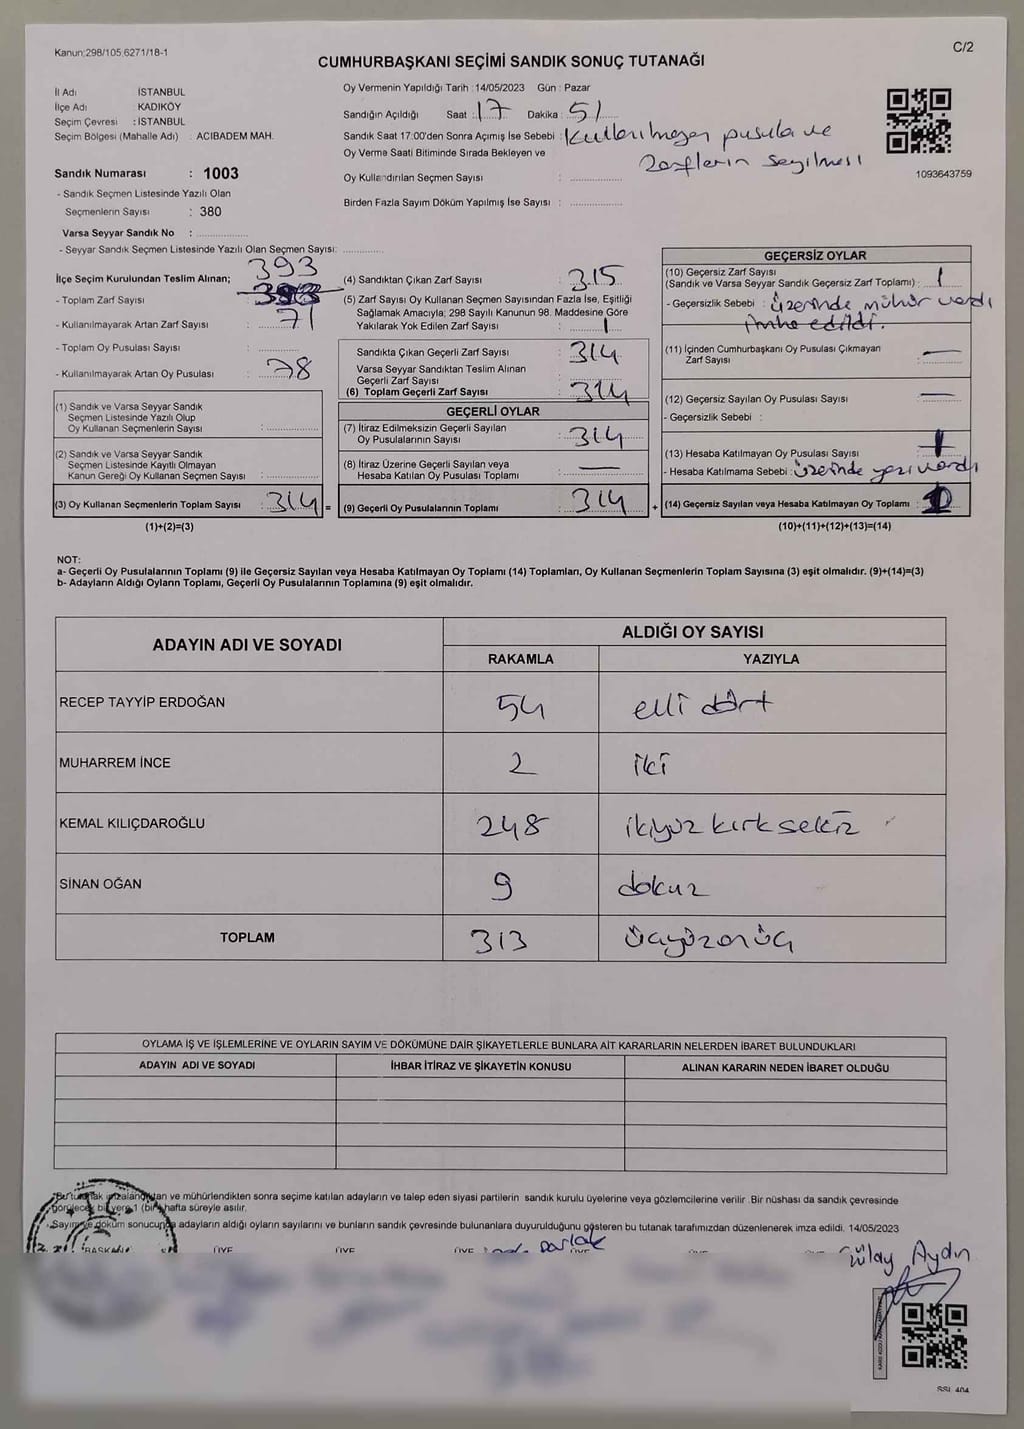 Kanun:298/105,6271/18-1
C/2
CUMHURBAŞKANI SEÇİMİ SANDIK SONUÇ TUTANAĞI
İl Adı İSTANBUL
İlçe Adı : KADIKÖY
Seçim Çevresi : İSTANBUL
Seçim Bölgesi (Mahalle Adı) : ACIBADEM MAH.
Sandık Numarası : 1003
- Sandık Seçmen Listesinde Yazılı Olan
Seçmenlerin Sayısı : 380
Varsa Seyyar Sandık No :
- Seyyar Sandık Seçmen Listesinde Yazılı Olan Seçmen Sayısı:
Oy Vermenin Yapıldığı Tarih : 14/05/2023 Gün : Pazar
Sandığın Açıldığı Saat : 17 Dakika : 51
Sandık Saat 17:00'den Sonra Açımış İse Sebebi : Kullanılmayan pusula ve
zarfların sayılması
Oy Verme Saati Bitiminde Sırada Bekleyen ve
Oy Kullandırılan Seçmen Sayısı :
Birden Fazla Sayım Döküm Yapılmış İse Sayısı :
1093643759
393
İlçe Seçim Kurulundan Teslim Alınan;
- Toplam Zarf Sayısı
- Kullanılmayarak Artan Zarf Sayısı : 71
- Toplam Oy Pusulası Sayısı :
- Kullanılmayarak Artan Oy Pusulası : 78
(1) Sandık ve Varsa Seyyar Sandık
Seçmen Listesinde Yazılı Olup
Oy Kullanan Seçmenlerin Sayısı :
(2) Sandık ve Varsa Seyyar Sandık
Seçmen Listesinde Kayıtlı Olmayan
Kanun Gereği Oy Kullanan Seçmen Sayısı :
(3) Oy Kullanan Seçmenlerin Toplam Sayısı : 314 =
(1)+(2)=(3)
(4) Sandıktan Çıkan Zarf Sayısı : 315
(5) Zarf Sayısı Oy Kullanan Seçmen Sayısından Fazla İse, Eşitliği
Sağlamak Amacıyla; 298 Sayılı Kanunun 98. Maddesine Göre
Yakılarak Yok Edilen Zarf Sayısı : 1
Sandıkta Çıkan Geçerli Zarf Sayısı : 314
Varsa Seyyar Sandıktan Teslim Alınan
Geçerli Zarf Sayısı :
(6) Toplam Geçerli Zarf Sayısı : 314
GEÇERLİ OYLAR
(7) İtiraz Edilmeksizin Geçerli Sayılan
Oy Pusulalarının Sayısı : 314
(8) İtiraz Üzerine Geçerli Sayılan veya
Hesaba Katılan Oy Pusulası Toplamı : —
(9) Geçerli Oy Pusulalarının Toplamı : 314 +
GEÇERSİZ OYLAR
(10) Geçersiz Zarf Sayısı
(Sandık ve Varsa Seyyar Sandık Geçersiz Zarf Toplamı) : 1
- Geçersizlik Sebebi : üzerinde mühür vardı
imha edildi.
(11) İçinden Cumhurbaşkanı Oy Pusulası Çıkmayan
Zarf Sayısı : —
(12) Geçersiz Sayılan Oy Pusulası Sayısı : —
- Geçersizlik Sebebi :
(13) Hesaba Katılmayan Oy Pusulası Sayısı : 1
- Hesaba Katılmama Sebebi : üzerinde yazı vardı
(14) Geçersiz Sayılan veya Hesaba Katılmayan Oy Toplamı :
(10)+(11)+(12)+(13)=(14)
NOT:
a- Geçerli Oy Pusulalarının Toplamı (9) ile Geçersiz Sayılan veya Hesaba Katılmayan Oy Toplamı (14) Toplamları, Oy Kullanan Seçmenlerin Toplam Sayısına (3) eşit olmalıdır. (9)+(14)=(3)
b- Adayların Aldığı Oyların Toplamı, Geçerli Oy Pusulalarının Toplamına (9) eşit olmalıdır.
ADAYIN ADI VE SOYADI ALDIĞI OY SAYISI
RAKAMLA YAZIYLA
RECEP TAYYİP ERDOĞAN 54 elli dört
MUHARREM İNCE 2 iki
KEMAL KILIÇDAROĞLU 248 ikiyüz kırk sekiz
SİNAN OĞAN 9 dokuz
TOPLAM 313 üçyüzonüç
OYLAMA İŞ VE İŞLEMLERİNE VE OYLARIN SAYIM VE DÖKÜMÜNE DAİR ŞİKAYETLERLE BUNLARA AİT KARARLARIN NELERDEN İBARET BULUNDUKLARI
ADAYIN ADI VE SOYADI İHBAR İTİRAZ VE ŞİKAYETİN KONUSU ALINAN KARARIN NEDEN İBARET OLDUĞU
ve mühürlendikten sonra seçime katılan adayların ve talep eden siyasi partilerin sandık kurulu üyelerine veya gözlemcilerine verilir. Bir nüshası da sandık çevresinde
hafta süreyle asılır.
döküm sonucunda adayların aldığı oyların sayılarını ve bunların sandık çevresinde bulunanlara duyurulduğunu gösteren bu tutanak tarafımızdan düzenlenerek imza edildi. 14/05/2023
BAŞKAN ÜYE ÜYE ÜYE Parlak ÜYE
Gülay Aydın
SSİ 404